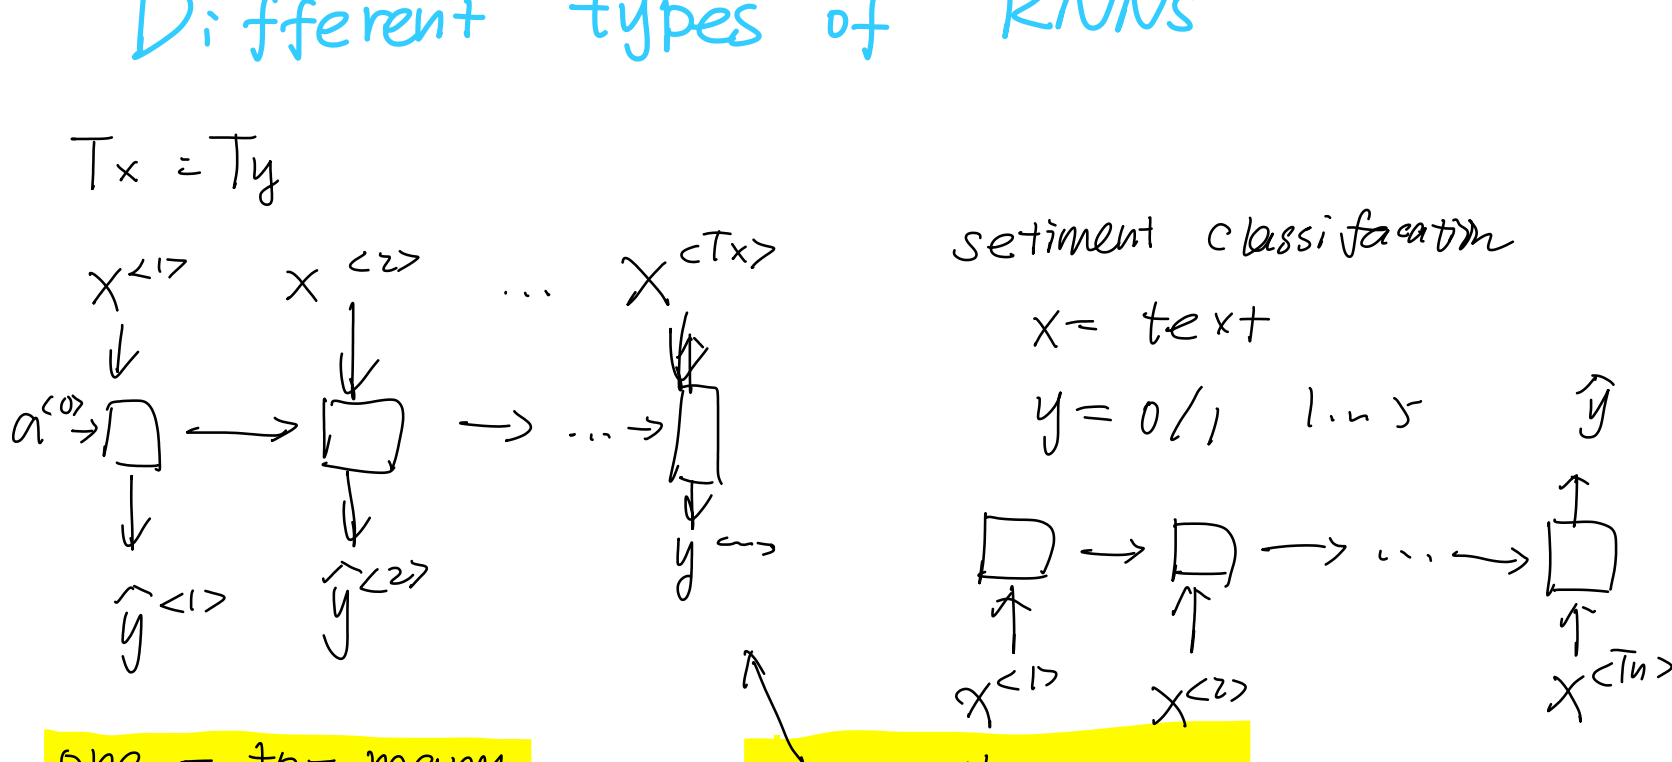 Different types of RNNs
Tx = Ty
x<1> x<2> ... x<Tx>
a<0>
ŷ<1> ŷ<2> y
setiment classifacation
x = text
y = 0/1
ŷ
...
x<1> x<2> x<Tn>
one - to - many